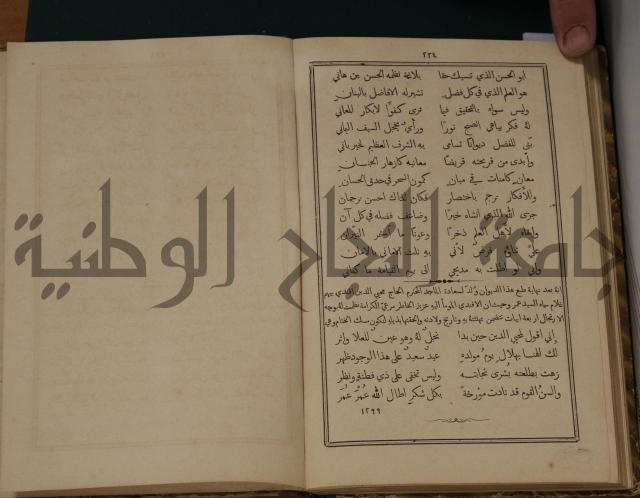 ٢٢٤
ابو الحسن الذي تسبيك حقا بلاغة نظمه الحسن بن هاني
هو العلم الذي في كل فضل تشير له الافاضل بالبنان
وليس سواه بالتحقيق فينا نرى كفوًا لابكار المعاني
له فكر يباهي الصبح نورًا ورأي يخجل السيف اليماني
بنى للفضل ديوانًا تسامى به الشرف العظيم لخير باني
وأبدى من قريحته قريضًا معانيه كازهار الجنان
معان كامنات في مبان كمون السحر في حدق الحسان
وللأفكار ترجم باختصار فكان لذاك احسن ترجمان
جزى الله الذي انشاه خيرًا وضاعف فضله في كل آن
لأهل العلم ذخرًا وعونًا ما
لأني به نلت الاماني بالامان
به مديحي الى يوم القيامة ما كفاني
انه بعد نهاية طبع هذا الديوان وُلد لسعادة الماجد المحترم الحاج محيي الدين افندي بيهم
غلام سماه السيد عمر وحيث ان الافندي المومأ اليه عزيز الخاطر مرعي الكرامة نظمت له بوجه
الارتجال اربعة ابيات تتضمن تهنئته به وتاريخ ولادته والحقتها بذيله لتكون مسك الختام وهي
اني اقول لمحيي الدين حين بدا نجلٌ له وهو عين للعلا وأثر
لك الهنا بهلال يوم مولده عيد سعيد على هذا الوجود ظهر
زهت بطلعته بُشرى نجابته وليس تخفى على ذي فطنة ونظر
والسن القوم قد نادت مؤرخة بكل شكر اطال الله عُمْرَ عُمَر
١٢٩٩
جامعة النجاح الوطنية